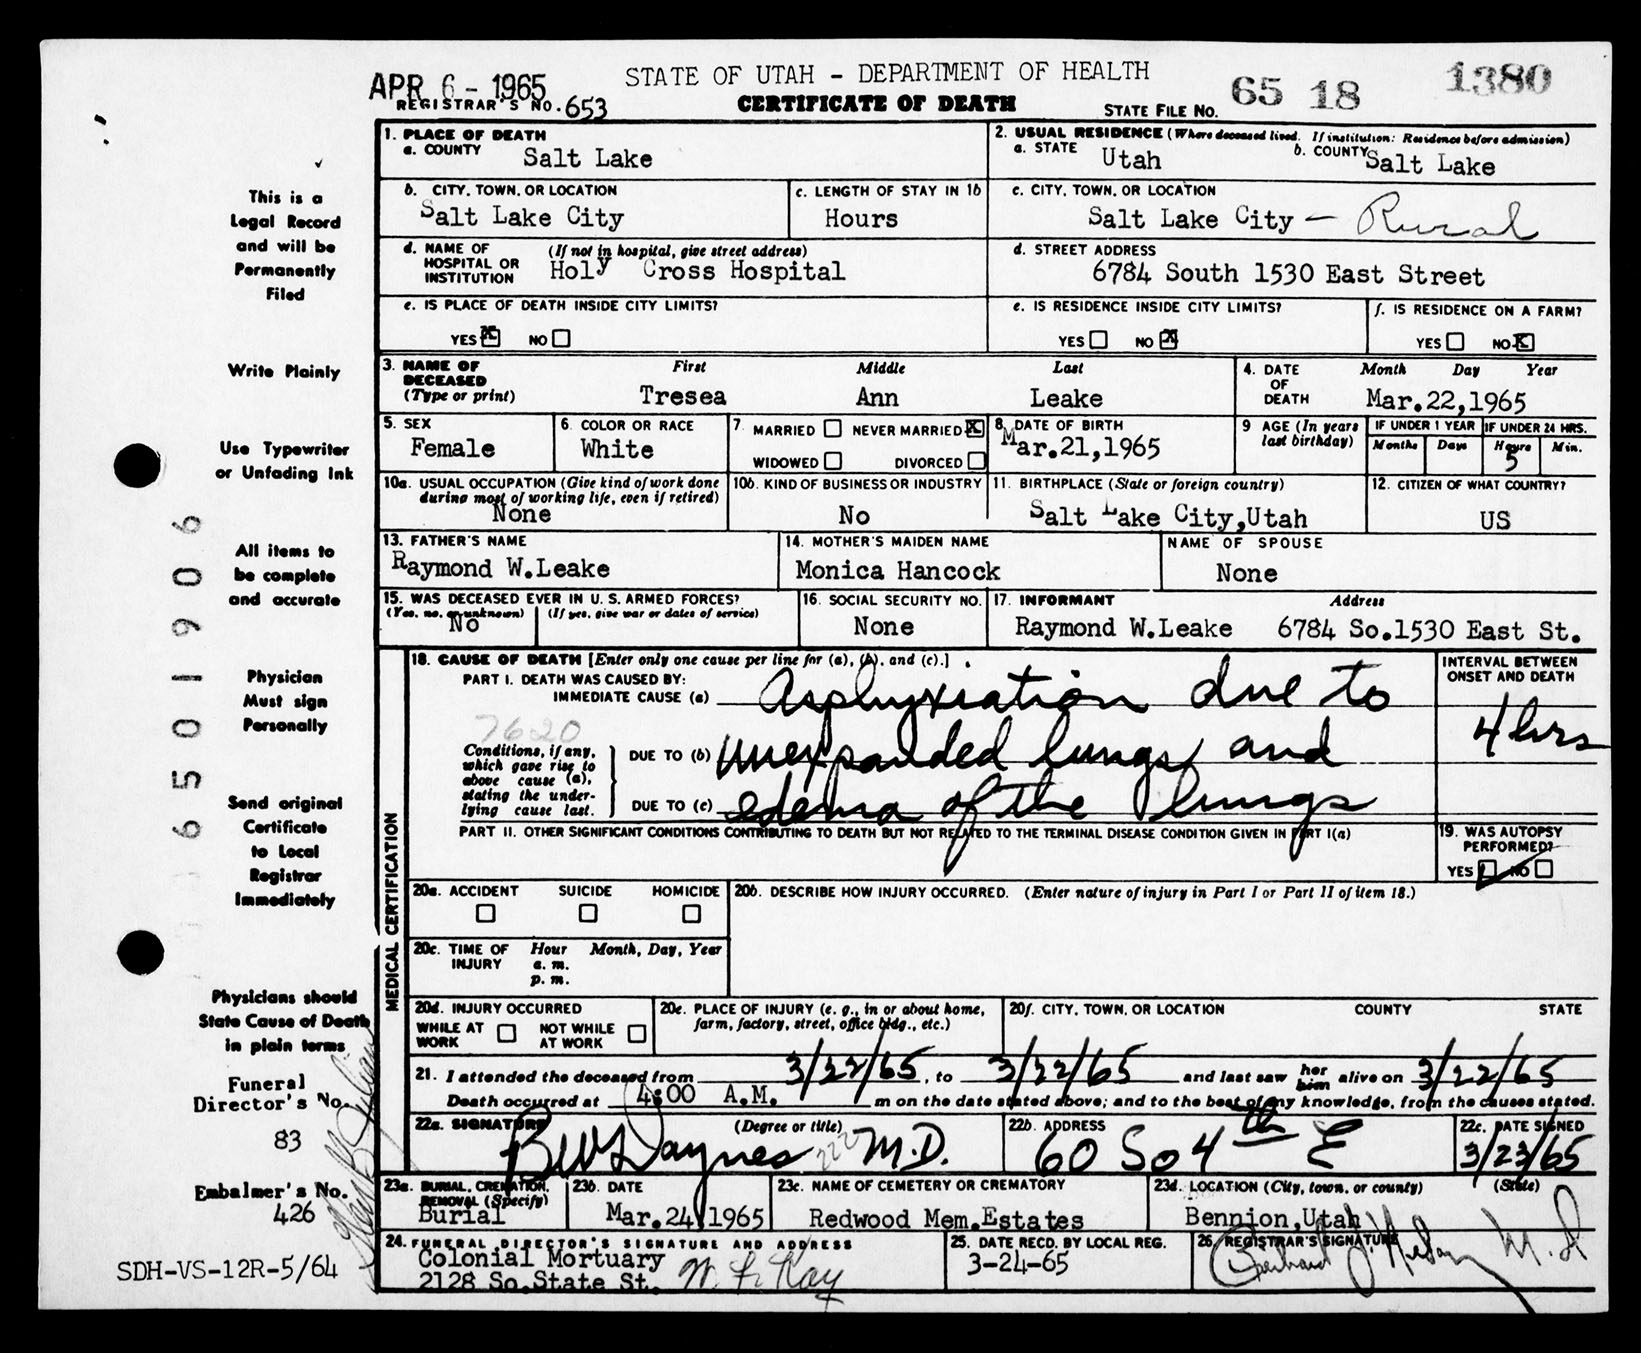 APR 6 - 1965
STATE OF UTAH - DEPARTMENT OF HEALTH
REGISTRAR'S NO. 653
CERTIFICATE OF DEATH
STATE FILE NO. 65 18 1380
This is a
Legal Record
and will be
Permanently
Filed
Write Plainly
Use Typewriter
or Unfading Ink
All items to
be complete
and accurate
Physician
Must sign
Personally
Send original
Certificate
to Local
Registrar
Immediately
Physicians should
State Cause of Death
in plain terms
Funeral
Director's No.
83
Embalmer's No.
426
SDH-VS-12R-5/64
65 01906
1. PLACE OF DEATH
a. COUNTY Salt Lake
2. USUAL RESIDENCE (Where deceased lived. If institution: Residence before admission)
a. STATE Utah b. COUNTY Salt Lake
b. CITY, TOWN, OR LOCATION
Salt Lake City
c. LENGTH OF STAY IN 1b
Hours
c. CITY, TOWN, OR LOCATION
Salt Lake City - Rural
d. NAME OF HOSPITAL OR INSTITUTION (If not in hospital, give street address)
Holy Cross Hospital
d. STREET ADDRESS
6784 South 1530 East Street
e. IS PLACE OF DEATH INSIDE CITY LIMITS?
YES X NO
e. IS RESIDENCE INSIDE CITY LIMITS?
YES NO X
f. IS RESIDENCE ON A FARM?
YES NO X
3. NAME OF DECEASED (Type or print)
First Middle Last
Tresea Ann Leake
4. DATE OF DEATH Month Day Year
Mar.22,1965
5. SEX
Female
6. COLOR OR RACE
White
7. MARRIED NEVER MARRIED X
WIDOWED DIVORCED
8. DATE OF BIRTH
Mar.21,1965
9 AGE (In years last birthday)
IF UNDER 1 YEAR IF UNDER 24 HRS.
Months Days Hours Min.
5
10a. USUAL OCCUPATION (Give kind of work done during most of working life, even if retired)
None
10b. KIND OF BUSINESS OR INDUSTRY
No
11. BIRTHPLACE (State or foreign country)
Salt Lake City,Utah
12. CITIZEN OF WHAT COUNTRY?
US
13. FATHER'S NAME
Raymond W.Leake
14. MOTHER'S MAIDEN NAME
Monica Hancock
NAME OF SPOUSE
None
15. WAS DECEASED EVER IN U. S. ARMED FORCES?
(Yes, no, or unknown) (If yes, give war or dates of service)
No
16. SOCIAL SECURITY NO.
None
17. INFORMANT Address
Raymond W.Leake 6784 So.1530 East St.
MEDICAL CERTIFICATION
18. CAUSE OF DEATH [Enter only one cause per line for (a), (b), and (c).]
PART I. DEATH WAS CAUSED BY:
IMMEDIATE CAUSE (a) Asphyxiation due to
7620
Conditions, if any, which gave rise to above cause (a), stating the underlying cause last.
DUE TO (b) unexpanded lungs and
DUE TO (c) edema of the lungs
INTERVAL BETWEEN ONSET AND DEATH
4 hrs
PART II. OTHER SIGNIFICANT CONDITIONS CONTRIBUTING TO DEATH BUT NOT RELATED TO THE TERMINAL DISEASE CONDITION GIVEN IN PART I(a)
19. WAS AUTOPSY PERFORMED?
YES NO
20a. ACCIDENT SUICIDE HOMICIDE
20b. DESCRIBE HOW INJURY OCCURRED. (Enter nature of injury in Part I or Part II of item 18.)
20c. TIME OF INJURY Hour Month, Day, Year
a. m.
p. m.
20d. INJURY OCCURRED
WHILE AT WORK NOT WHILE AT WORK
20e. PLACE OF INJURY (e. g., in or about home, farm, factory, street, office bldg., etc.)
20f. CITY, TOWN, OR LOCATION COUNTY STATE
21. I attended the deceased from 3/22/65, to 3/22/65 and last saw her him alive on 3/22/65
Death occurred at 4:00 A.M. m on the date stated above; and to the best of my knowledge, from the causes stated.
22a. SIGNATURE (Degree or title)
BW Daynes M.D.
22b. ADDRESS
60 So 4th E
22c. DATE SIGNED
3/23/65
23a. BURIAL, CREMATION, REMOVAL (Specify)
Burial
23b. DATE
Mar.24,1965
23c. NAME OF CEMETERY OR CREMATORY
Redwood Mem.Estates
23d. LOCATION (City, town, or county) (State)
Bennion,Utah
24. FUNERAL DIRECTOR'S SIGNATURE AND ADDRESS
Colonial Mortuary
2128 So.State St.
25. DATE RECD. BY LOCAL REG.
3-24-65
26. REGISTRAR'S SIGNATURE